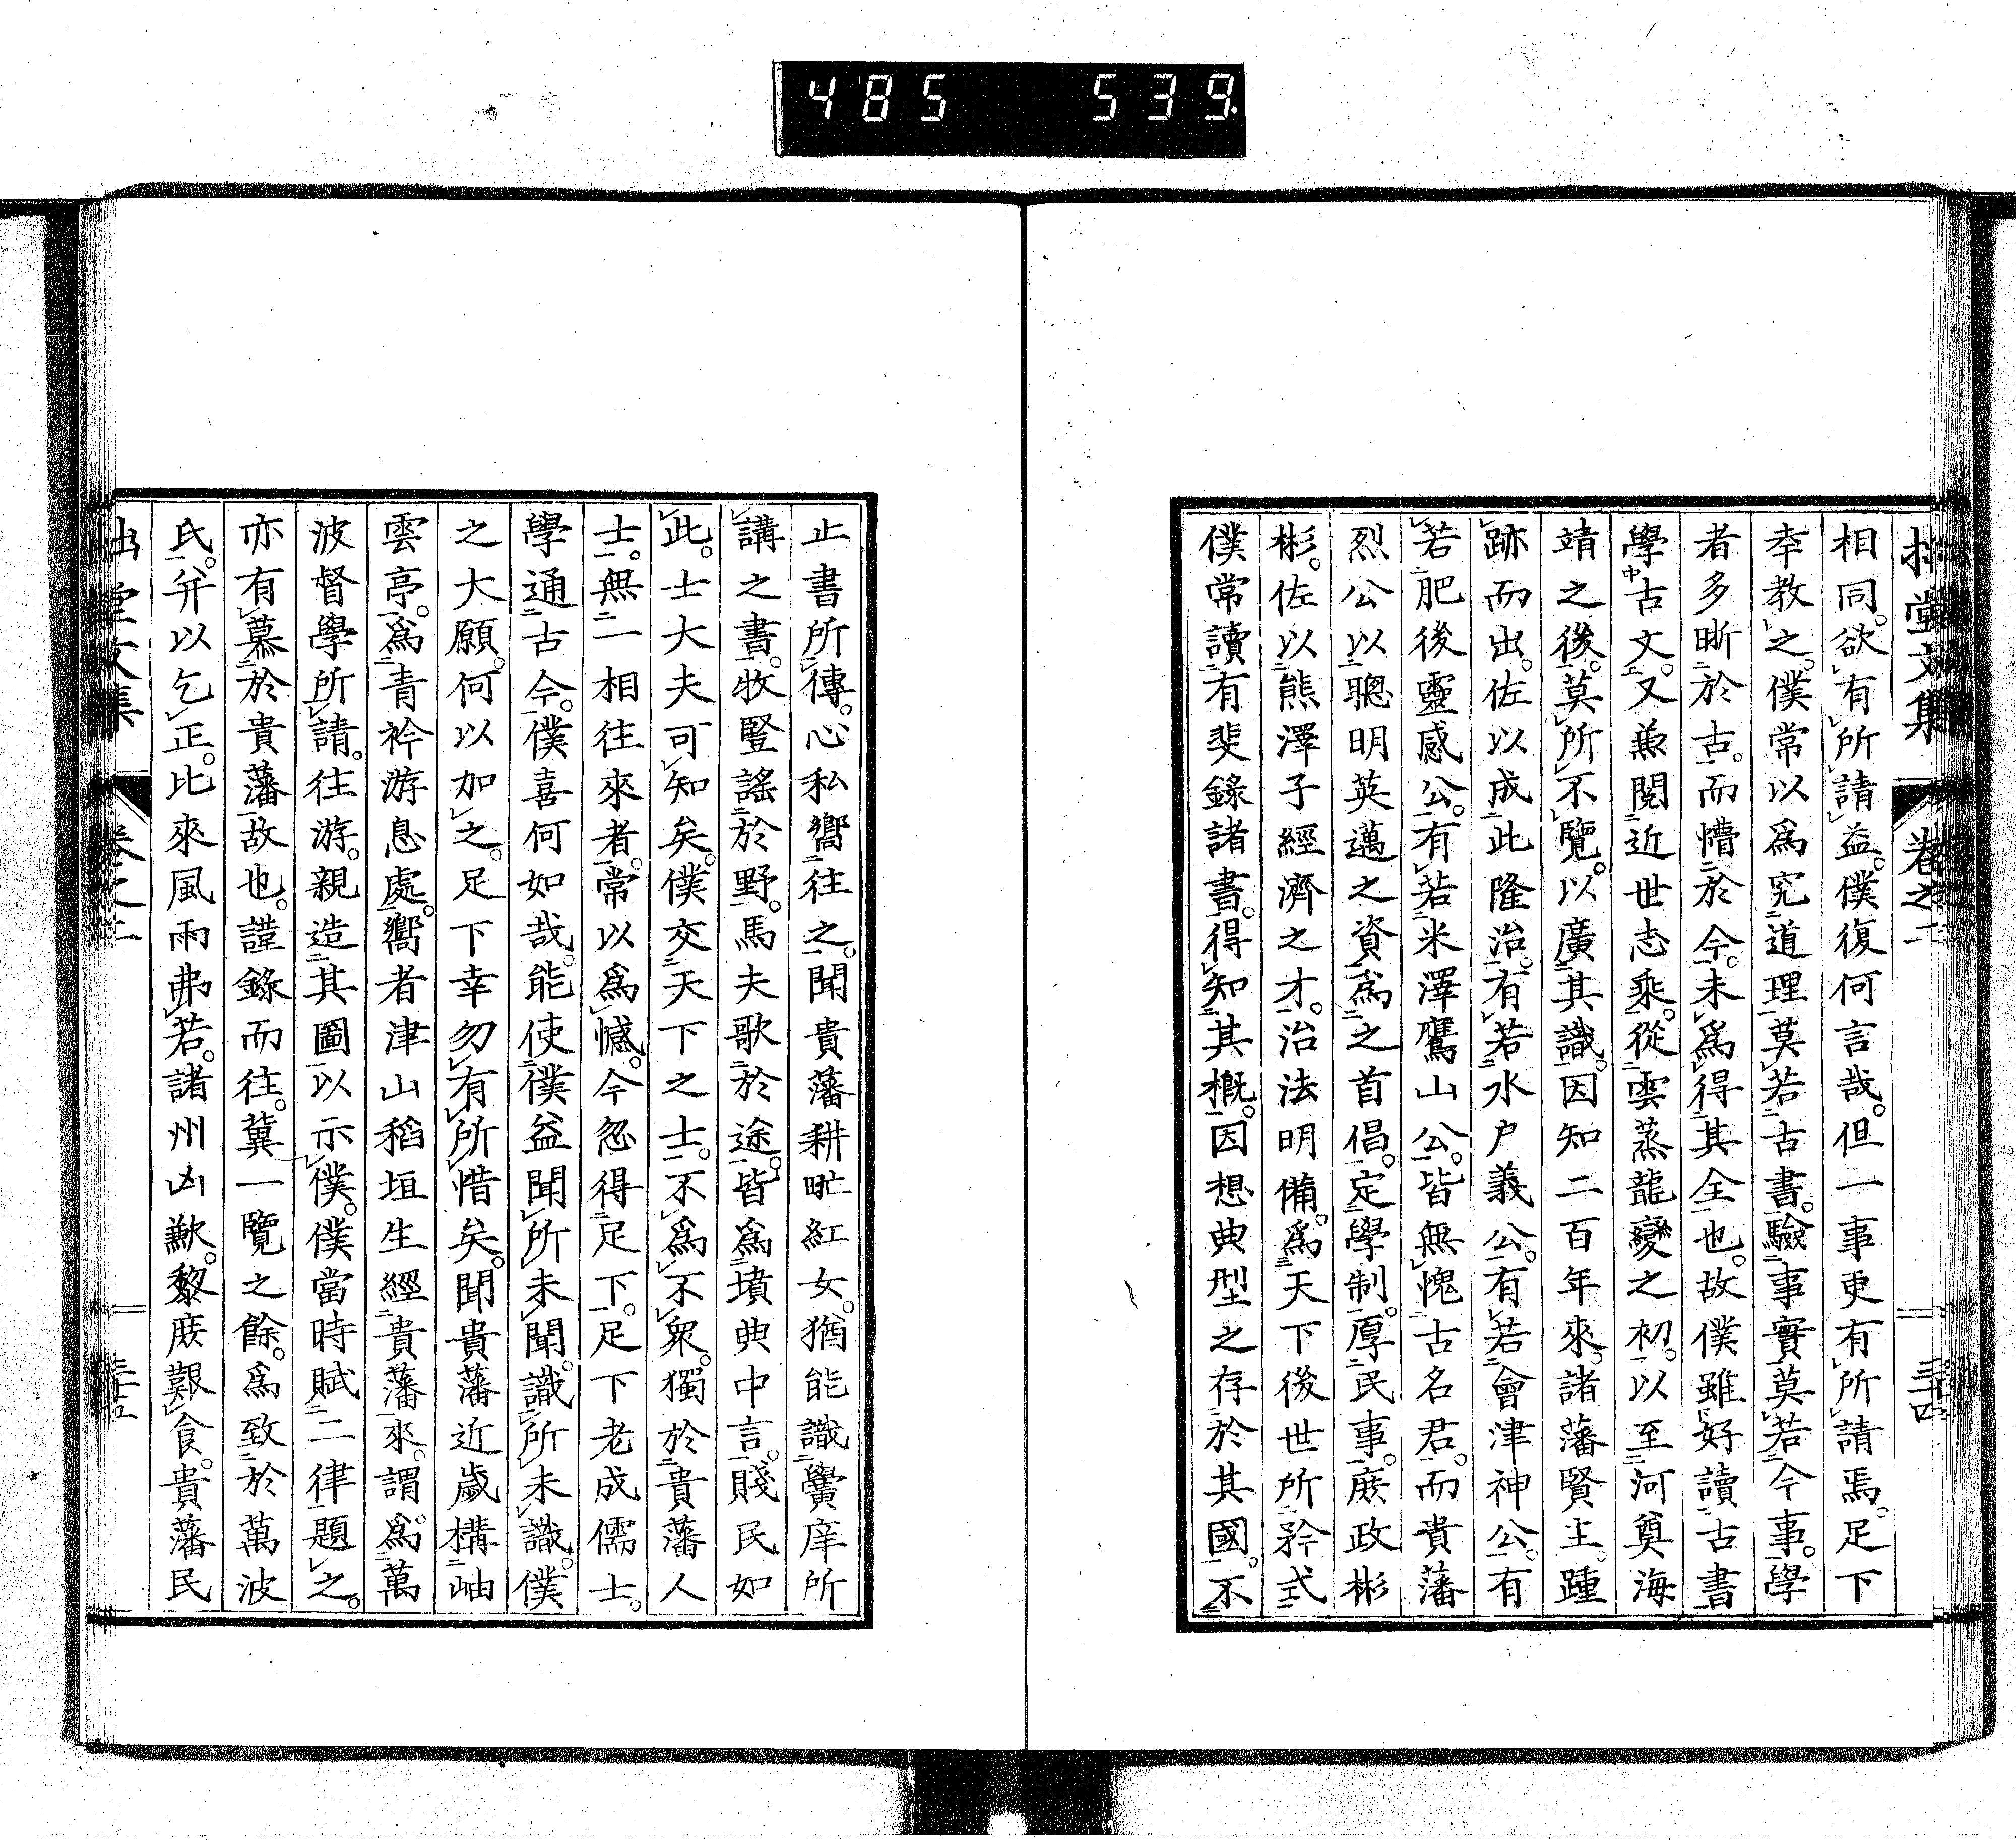 485 539
拙堂文集 卷之二 三十四
相同。欲有所請益。僕復何言哉。但一事更有所請焉。足下
幸教之。僕常以爲究道理莫若古書。驗事實莫若今事。學
者多晣於古。而懵於今。未爲得其全也。故僕雖好讀古書
學古文。又兼閱近世志乘。從雲蒸龍變之初。以至河奠海
靖之後。莫所不覽。以廣其識。因知二百年來。諸藩賢主。踵
跡而出。佐以成此隆治。有若水戶義公。有若會津神公。有
若肥後靈感公。有若米澤鷹山公。皆無愧古名君。而貴藩
烈公以聰明英邁之資。爲之首倡。定學制。厚民事。庶政彬
彬。佐以熊澤子經濟之才。治法明備。爲天下後世所矜式
僕常讀有斐錄諸書。得知其概。因想典型之存於其國。不
止書所傳。心私嚮往之。聞貴藩耕甿紅女。猶能識黌庠所
講之書。牧豎謠於野。馬夫歌於途。皆爲墳典中言。賤民如
此。士大夫可知矣。僕交天下之士。不爲不衆。獨於貴藩人
士。無一相往來者。常以爲憾。今忽得足下。足下老成儒士。
學通古今。僕喜何如哉。能使僕益聞所未聞。識所未識。僕
之大願。何以加之。足下幸勿有所惜矣。聞貴藩近歲構岫
雲亭。爲青衿游息處。嚮者津山稻垣生經貴藩來。謂爲萬
波督學所請。往游。親造其圖以示僕。僕當時賦二律題之。
亦有慕於貴藩故也。謹錄而往。冀一覽之餘。爲致於萬波
氏。幷以乞正。比來風雨弗若。諸州凶歉。黎庶艱食。貴藩民
拙堂文集 卷之二 三十五